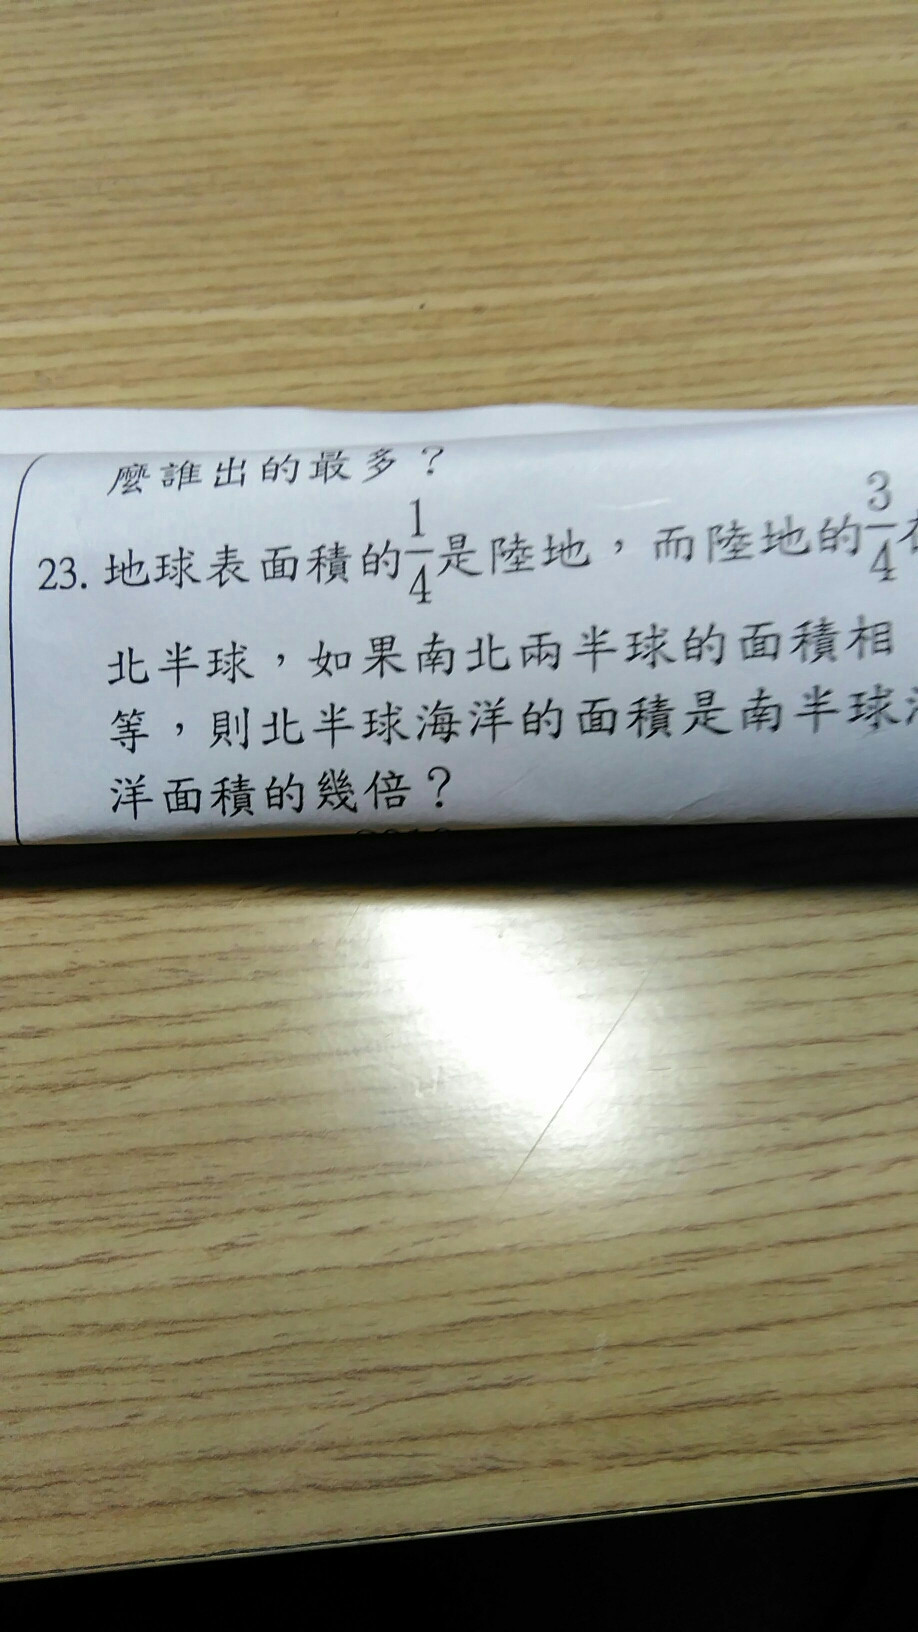 麼誰出的最多？
23. 地球表面積的1/4是陸地，而陸地的3/4
北半球，如果南北兩半球的面積相
等，則北半球海洋的面積是南半球
洋面積的幾倍？